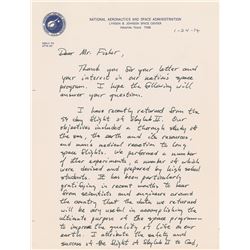 NATIONAL AERONAUTICS AND SPACE ADMINISTRATION
LYNDON B. JOHNSON SPACE CENTER
HOUSTON, TEXAS 77058
REPLY TO
ATTN OF:
1-24-74
Dear Mr. Fisher,
Thank you for your letter and
your interest in our nation's space
program. I hope the following will
answer your questions.
I have recently returned from the
59 day flight of Skylab II. Our
objectives included a thorough study of
the sun, the earth and its resources,
and man's medical reaction to long
space flights. We performed a number
of other experiments, a number of which
were devised and prepared by high school
students. It has been particularly
gratifying in recent months to hear
from scientists and engineers around
the country that the data we returned
will be very useful in accomplishing the
ultimate purpose of the space program -
to improve the quality of life here on
earth. I attribute the safety and
success of the flight of Skylab II to God,